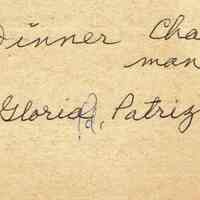 Dinner Cha
man
Gloria Pd, Patriz